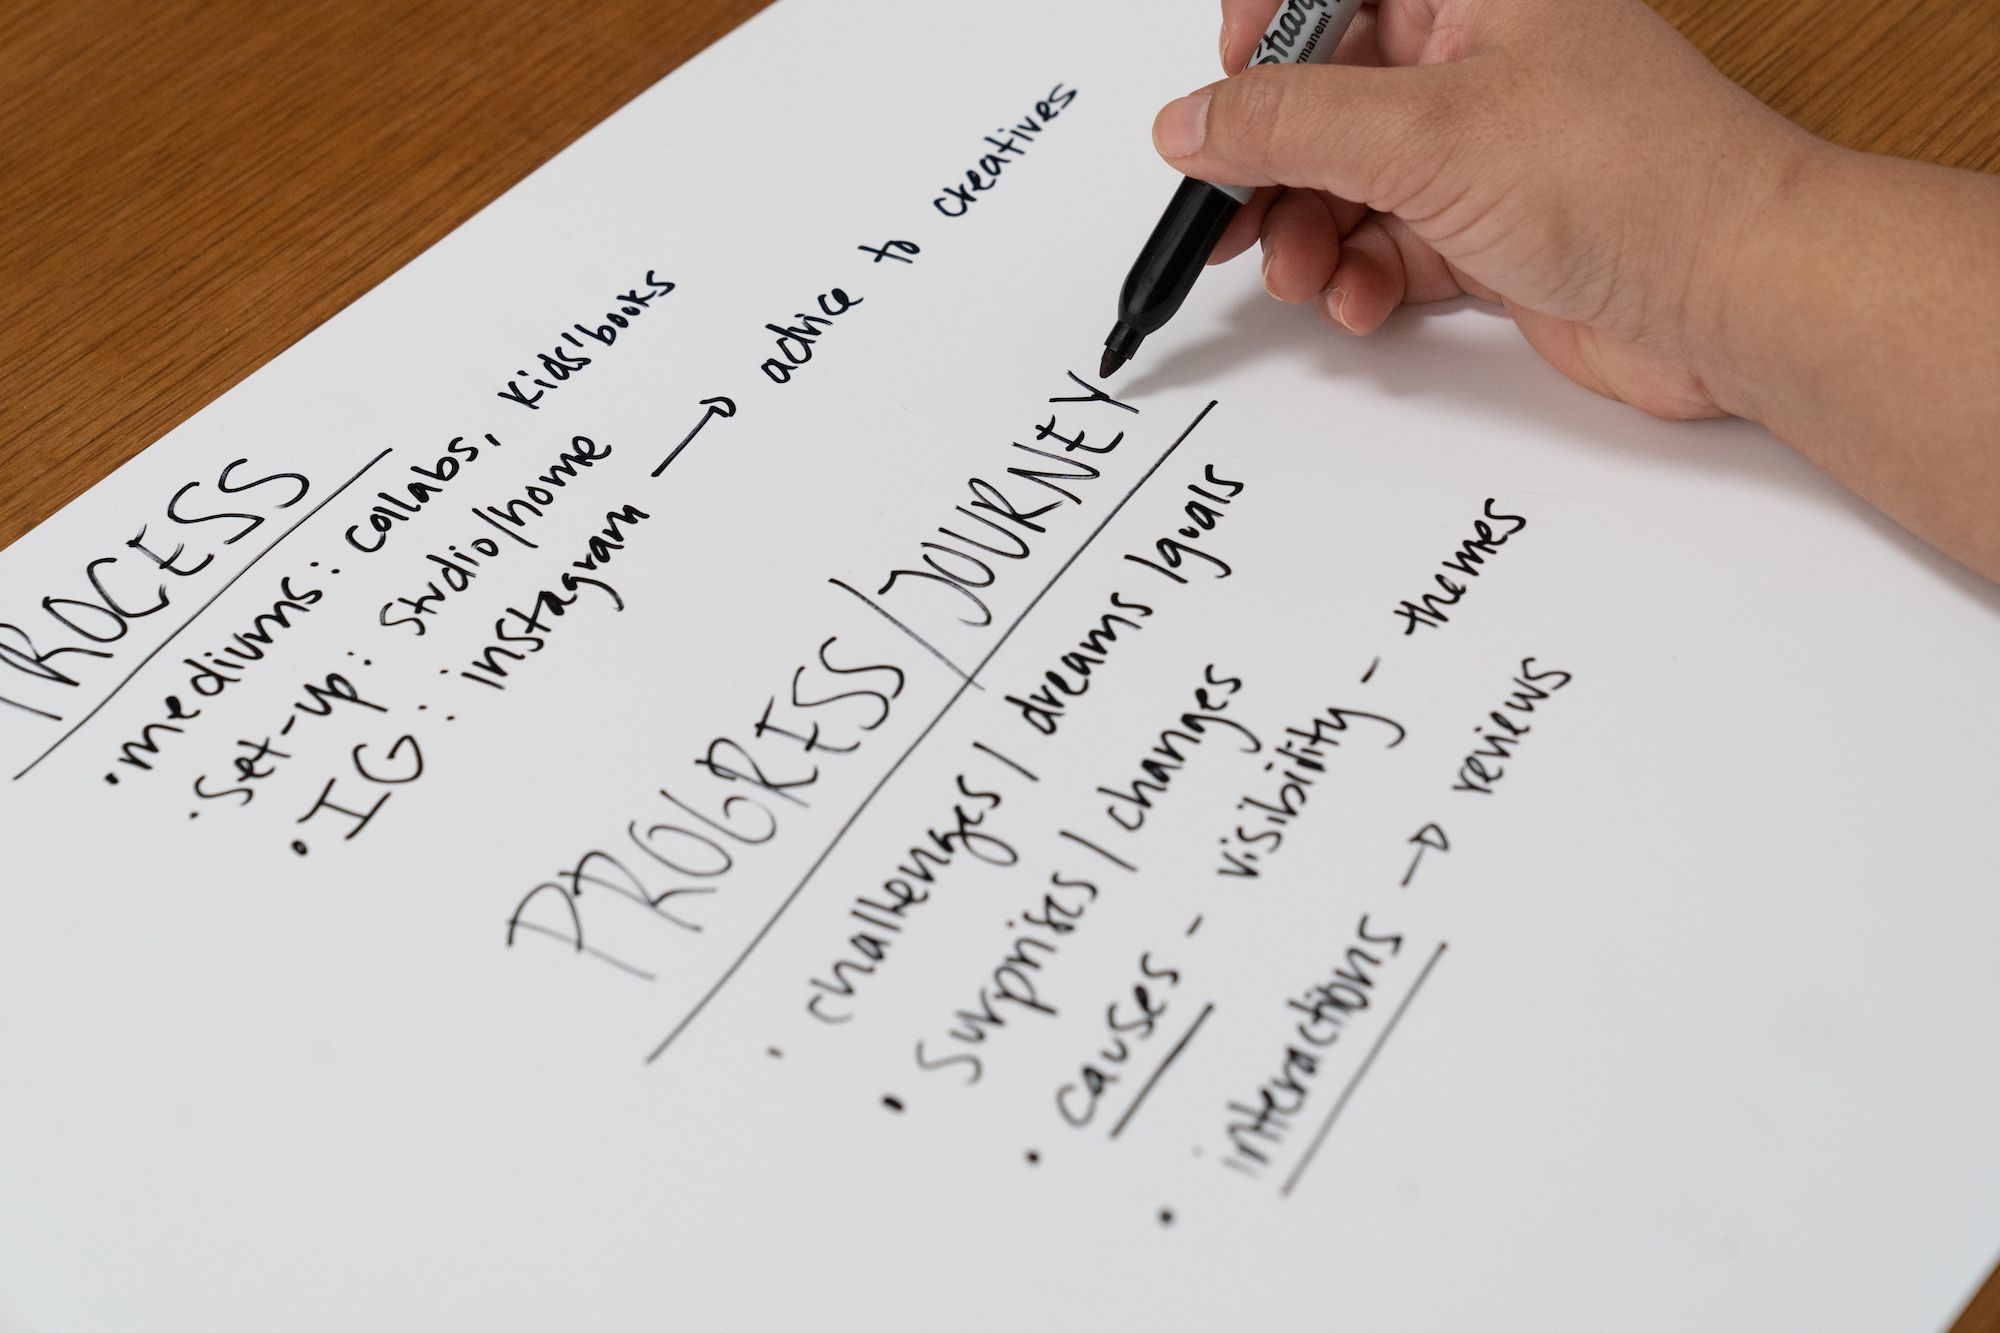 PROCESS
• mediums: collabs, kids' books
• Set-up: studio/home
• IG: instagram → advice to creatives
PROGRESS/JOURNEY
• challenges / dreams / goals
• surprises / changes
• causes - visibility - themes
• interactions → reviews
Sharp
rmanent